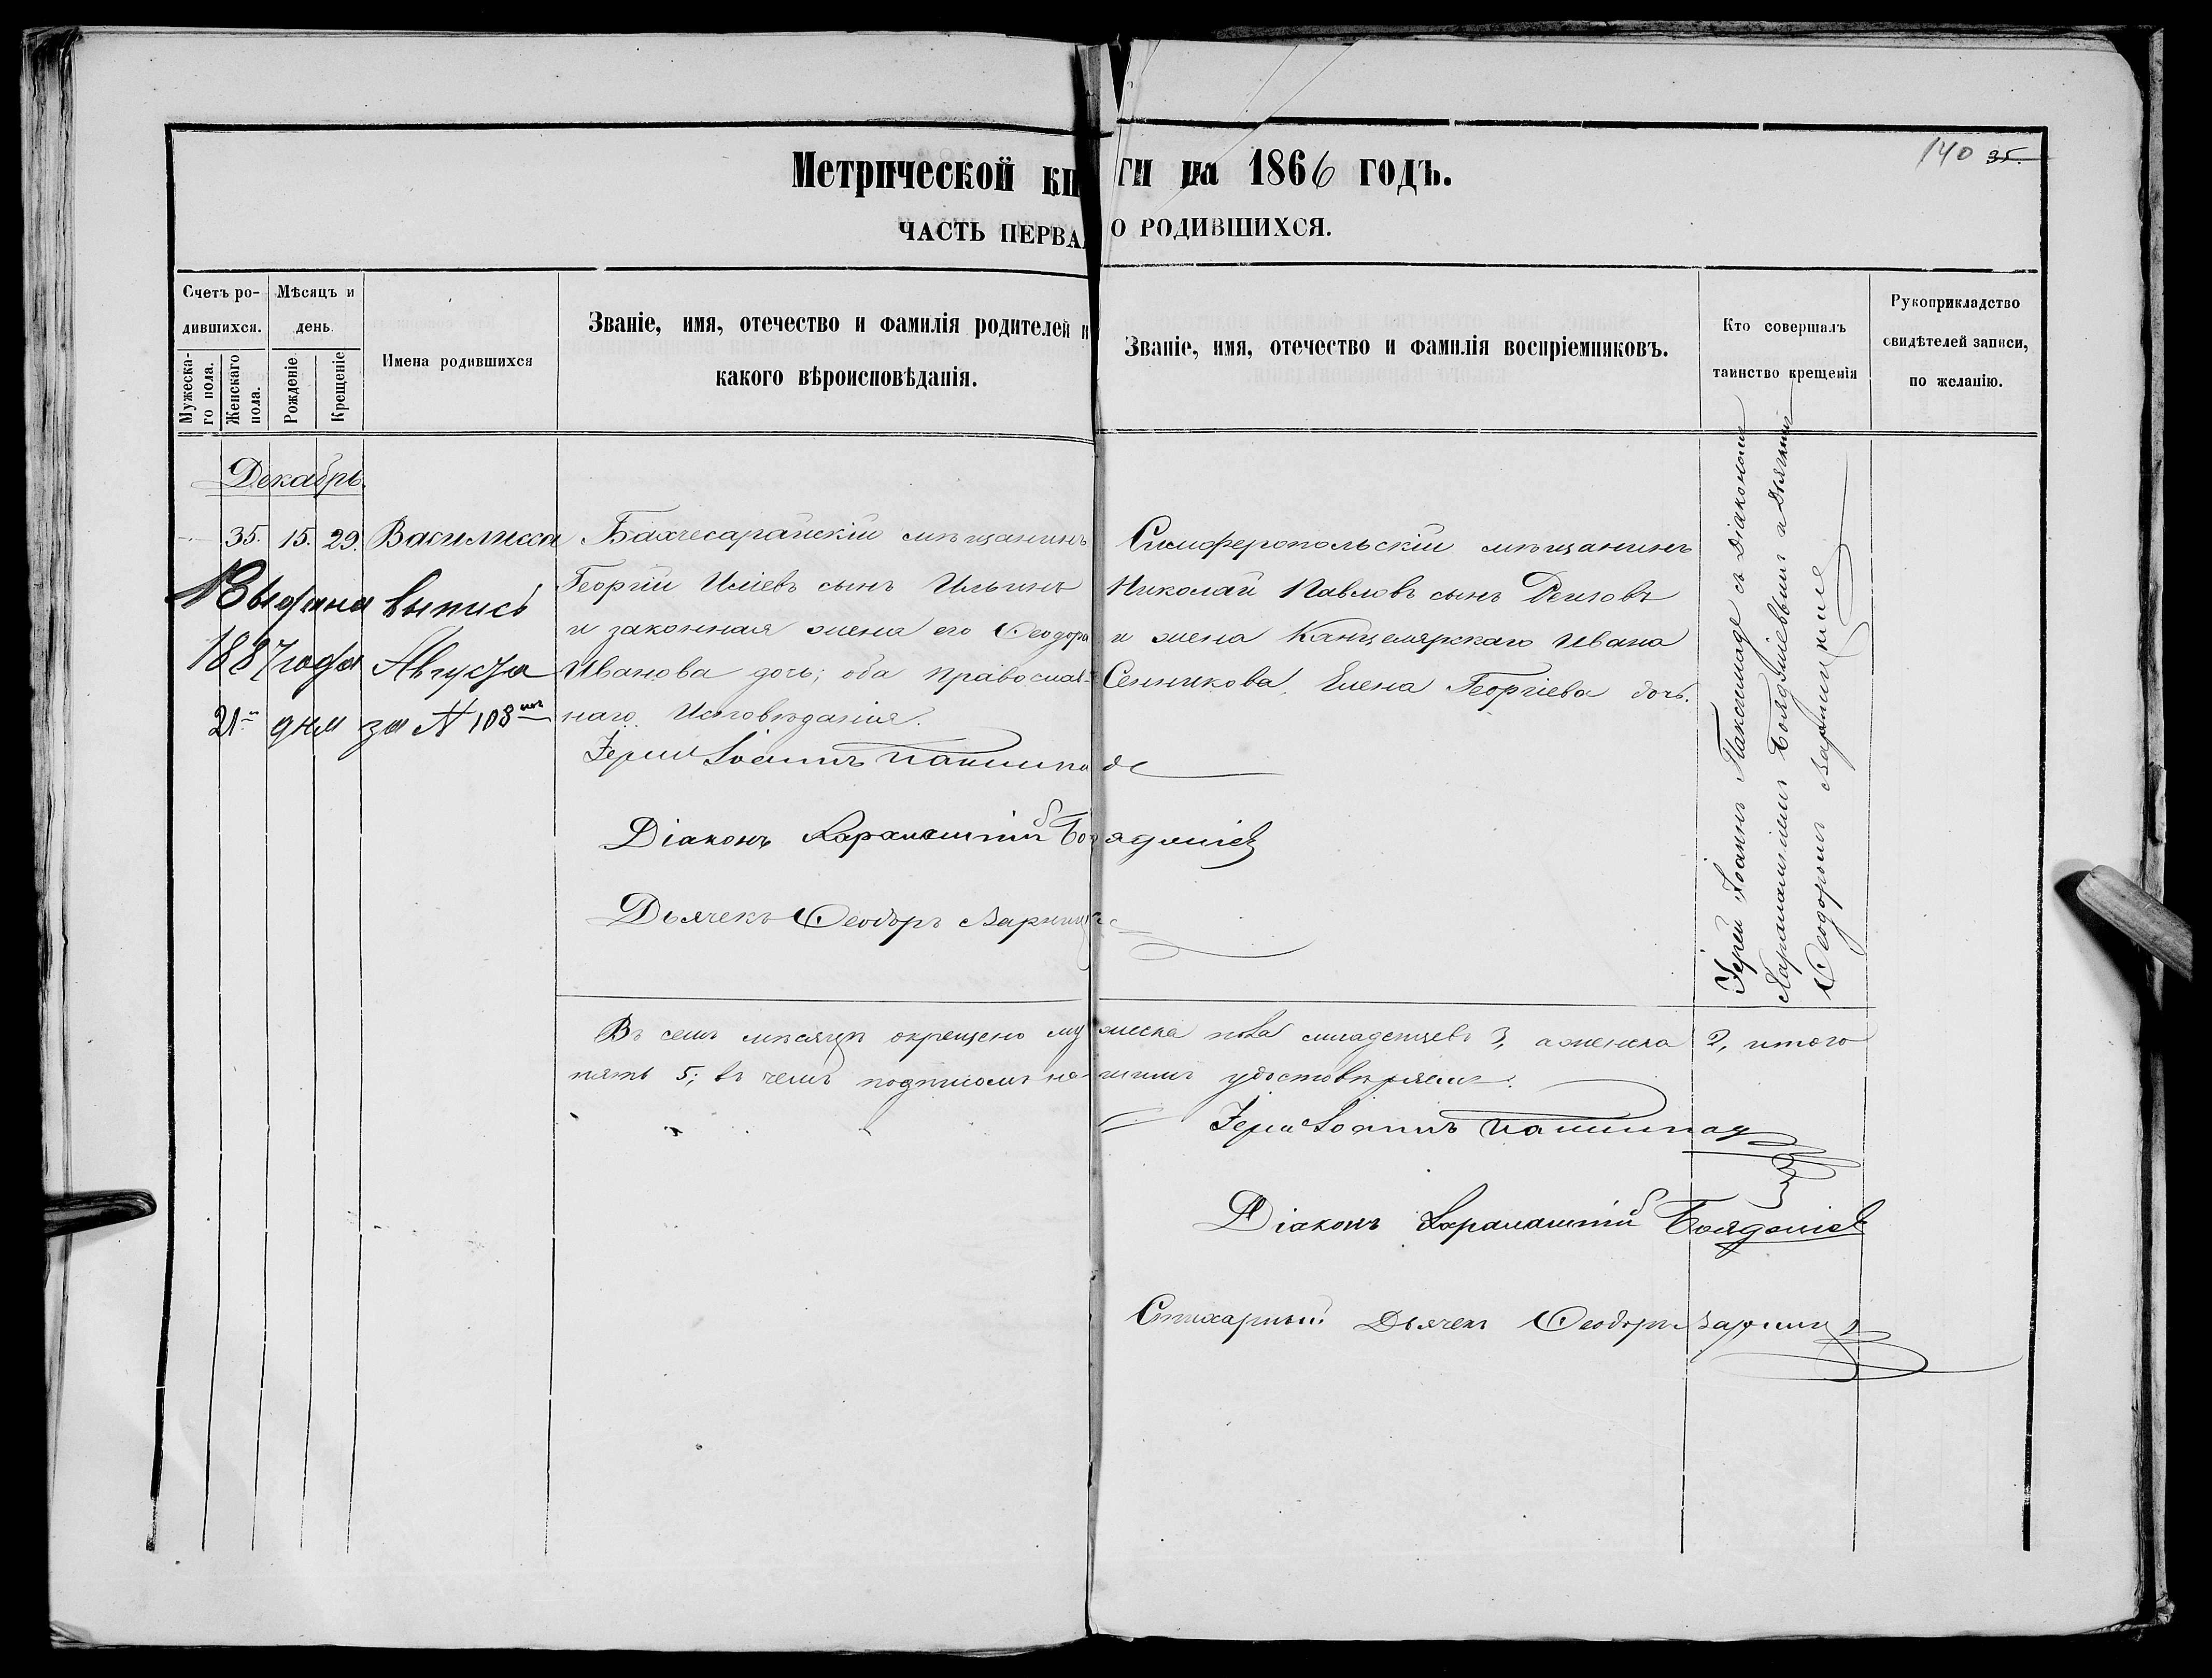 140 35.
Метрической кни ги на 1866 годъ.
ЧАСТЬ ПЕРВАЯ О РОДИВШИХСЯ.
Счетъ ро-
дившихся.
Мужеска-
го пола.
Женскаго
пола.
Мѣсяцъ и
день.
Рожденіе
Крещеніе
Имена родившихся
Званіе, имя, отечество и фамилія родителей и
какого вѣроисповѣданія.
Званіе, имя, отечество и фамилія воспріемниковъ.
Кто совершалъ
таинство крещенія
Рукоприкладство
свидѣтелей записи,
по желанію.
Декабрь.
35. 15. 29. Василисса
Выдана выпись
1887 года Августа
21го дня за № 108мъ
Бахчесарайскій мѣщанинъ
Георгій Иліевъ сынъ Ильинъ
и законная жена его Ѳеодора
Иванова дочь; оба православ-
наго Исповѣданія.
Симферопольскій мѣщанинъ
Николай Павловъ сынъ
и жена Канцелярскаго Ивана
Сенникова, Елена Георгіева дочь.
Іерей Іоаннъ Паксимаде съ Діакономъ
Харалампіемъ Бояджіевымъ и Дьячкомъ
Ѳеодоромъ
Іерей Іоаннъ Паксимаде
Діаконъ Харалампій Бояджіевъ
Дьячекъ Ѳеодоръ
Въ семъ мѣсяцѣ окрещено мужеска пола младенцевъ 3, а женска 2, итого
пять 5; въ чемъ подписомъ нашимъ удостовѣряемъ.
Іерей Іоаннъ Паксимаде
Діаконъ Харалампій Бояджіевъ
Стихарный Дьячекъ Ѳеодоръ